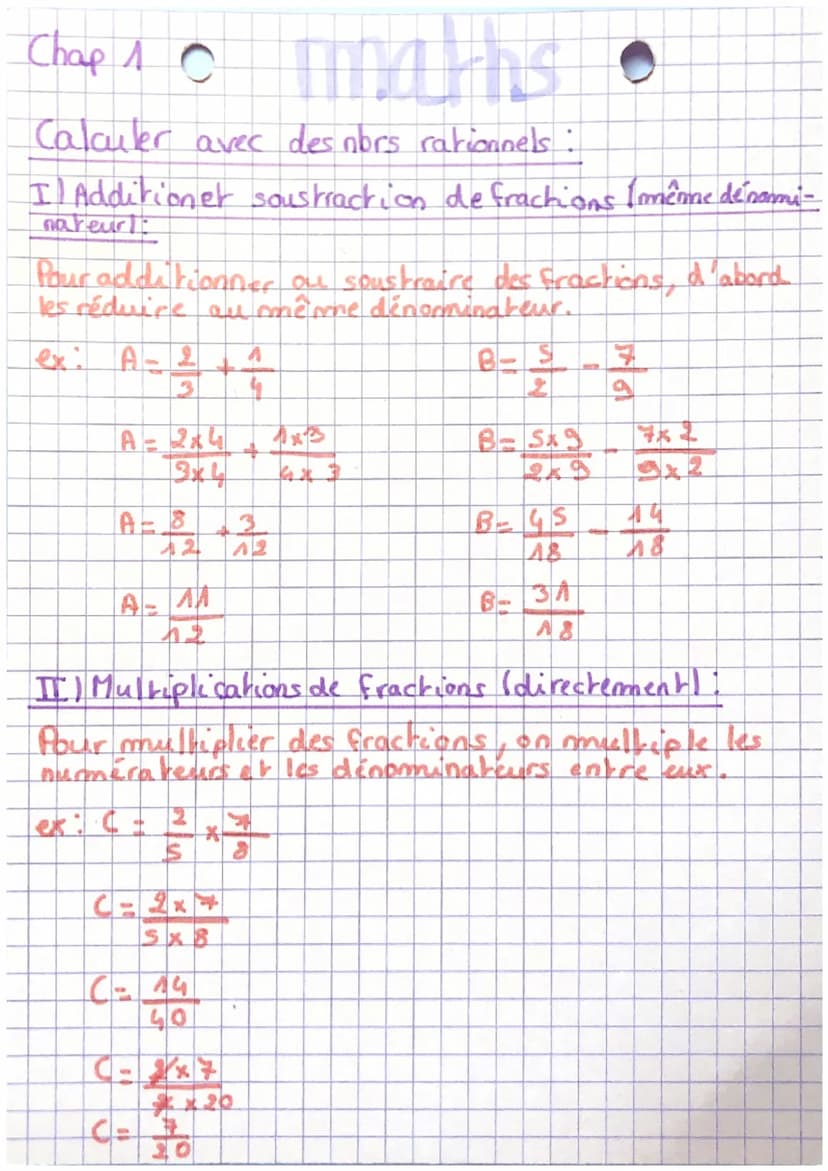 Chap 1 maths
Calculer avec des nbrs rationnels :
I) Addition et soustraction de fractions (même dénomi-
nateur):
Pour additionner ou soustraire des fractions, d'abord
les réduire au même dénominateur.
ex: A = 2/3 + 1/4 B = 5/2 - 7/9
A = 2x4/3x4 + 1x3/4x3 B = 5x9/2x9 - 7x2/9x2
A = 8/12 + 3/12 B = 45/18 - 14/18
A = 11/12 B = 31/18
II) Multiplications de fractions (directement) :
Pour multiplier des fractions, on multiple les
numérateurs et les dénominateurs entre eux.
ex: C = 2/5 x 7/8
C = 2x7/5x8
C = 14/40
C = 2x7/2x20
C = 7/20